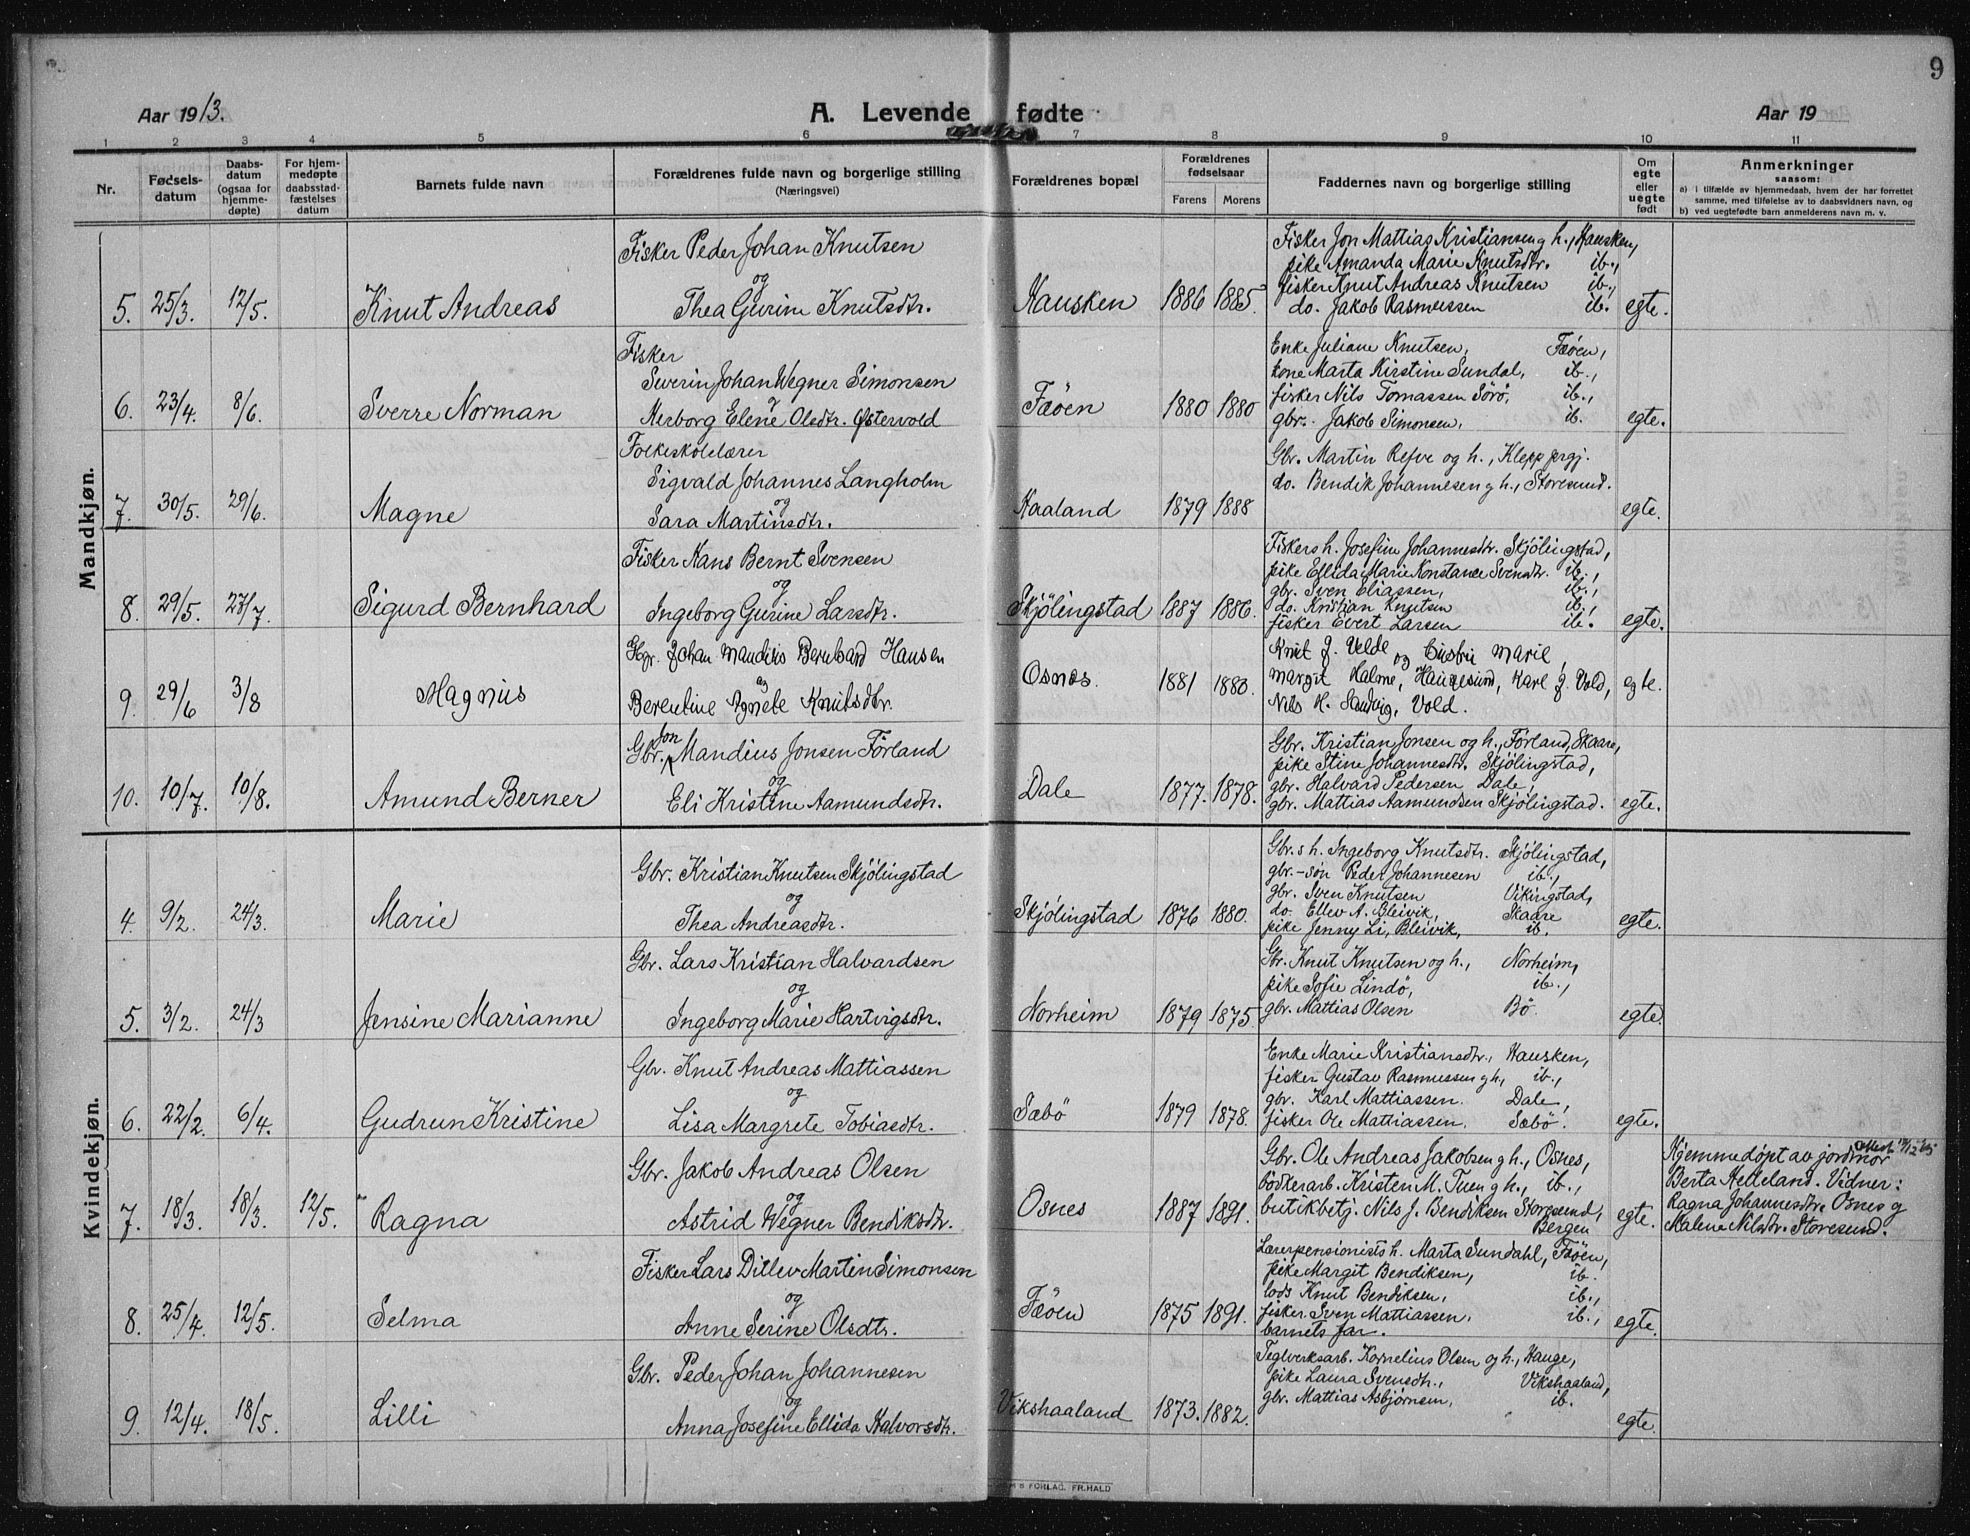 9
Aar 1913.
A. Levende fødte
Aar 19
1 2 3 4 5 6 7 8 9 10 11
Nr.
Fødsels-
datum
Daabs-
datum
(ogsaa for
hjemme-
døpte)
For hjem-
medøpte
daabsstad-
fæstelses
datum
Barnets fulde navn
Forældrenes fulde navn og borgerlige stilling
(Næringsvei)
Forældrenes bopæl
Forældrenes
fødselsaar
Farens Morens
Faddernes navn og borgerlige stilling
Om
egte
eller
uegte
født
Anmerkninger
saasom:
a) i tilfælde av hjemmedaab, hvem der har forrettet
samme, med tilføielse av to daabsvidners navn, og
b) ved uegtefødte barn anmelderens navn m. v.
Mandkjøn.
5. 25/3. 12/5. Knut Andreas
Fisker Peder Johan Knutsen
og
Thea Gurine Knutsdtr.
Hausken 1886 1885.
Fisker Jon Mattias Kristiansen g h., Hausken,
pike Amanda Marie Knutsdtr. ib.,
fisker Knut Andreas Knutsen ib.,
do. Jakob Rasmussen ib.
egte.
6. 23/4. 8/6. Sverre Norman
Fisker
Severin Johan Wegner Simonsen
Herborg Elene Olsdtr. Østervold
Fæøen 1880 1880
Enke Juliane Knutsen, Fæøen,
kone Marta Kirstine Sundal, ib.,
fisker Nils Tomassen Sørø, ib.,
gbr. Jakob Simonsen, ib.
egte.
7. 30/5. 29/6. Magne
Folkeskolelærer
Sigvald Johannes Langholm
og
Sara Martinsdtr.
Haaland 1879 1888
Gbr. Martin Refve og h., Klepp prgj.
do. Bendik Johannesen g h., Storesund.
egte.
8. 29/5. 27/7. Sigurd Bernhard
Fisker Hans Bernt Svensen
og
Ingeborg Gurine Larsdtr.
Skjölingstad 1887 1886.
Fiskers h. Josefine Johannesdtr. Skjölingstad,
pike Ellida Marie Konstance Svensdtr. ib.,
gbr. Sven Eliassen, ib.,
do. Kristian Knutsen ib.,
fisker Evert Larsen ib.
egte.
9. 29/6 3/8 Magnus
Gbr. Johan Mandius Bernhard Hansen
og
Berentine Agnete Knutsdtr.
Osnes. 1881 1880.
Knut J. Velde og Marie,
Margit Halme, Haugesund, Karl J. Vold,
Nils H. Vold.
egte.
10. 10/7. 10/8. Amund Berner
Gbr. Jon Mandius Jonsen Förland
og
Eli Kristine Aamundsdtr.
Dale 1877. 1878.
Gbr. Kristian Jonsen og h., Forland, Skaare,
pike Stine Johannesdtr. Skjölingstad,
gbr. Halvard Pedersen Dale,
gbr. Mattias Aamundsen Skjölingstad.
egte.
Kvindekjøn.
4. 9/2. 24/3. Marie
Gbr. Kristian Knutsen Skjölingstad
og
Thea Andreasdtr.
Skjölingstad 1876 1880.
Gbr.s h. Ingeborg Knutsdtr. Skjölingstad,
gbr.-søn Peder Johannesen ib.,
gbr. Sven Knutsen Vikingstad,
do. Ellev A. Bleivik, Skaare
pike Jenny Li, Bleivik, ib.
egte.
5. 3/2. 24/3 Jensine Marianne
Gbr. Lars Kristian Halvardsen
og
Ingeborg Marie Hartvigsdtr.
Norheim 1879 1875
Gbr. Knut Knutsen og h., Norheim,
pike Sofie Lindø, ib.,
gbr. Mattias Olsen Bø.
egte.
6. 22/2. 6/4. Gudrun Kristine
Gbr. Knut Andreas Mattiassen
og
Lisa Margrete Tobiasdtr.
Sæbö 1879 1878.
Enke Marie Kristiansdtr., Hausken,
fisker Gustav Rasmussen g h., ib.,
gbr. Karl Mattiassen. Dale,
fisker Ole Mattiassen, Sæbö.
egte.
7. 18/3. 18/3. 12/5. Ragna
Gbr. Jakob Andreas Olsen
og
Astrid Wegner Bendiksdtr.
Osnes 1887 1891.
Gbr. Ole Andreas Jakobsen g h., Osnes,
bödkerarb. Kristen M. Tuen g h., ib.,
butikbetj. Nils J. Bendiksen Storesund,
Bergen
egte.
Hjemmedøpt av jordmor
Berta Hedeland. Vidner:
Ragna Johannesdtr. Osnes g
Malene Nilsdtr. Storesund.
8. 25/4. 12/5. Selma
Fisker Lars Ditlev Martin Simonsen
og
Anne Serine Olsdtr.
Fæøen 1875 1891.
Lærerpensionists h. Marta Sundahl, Fæöen,
pike Margit Bendiksen, ib.
lods Knut Bendiksen, ib.,
fisker Sven Mattiassen, ib.,
barnets far.
egte.
9. 12/4. 18/5. Lilli
Gbr. Peder Johan Johannesen
og
Anna Josefine Ellida Halvorsdtr.
Vikshaaland 1873. 1882.
Teglverksarb. Kornelius Olsen og h., Hauge,
pike Laura Svensdtr., Vikshaaland,
gbr. Mattias Asbjørnsen, ib.
egte.
S FORLAG. FR. HALD